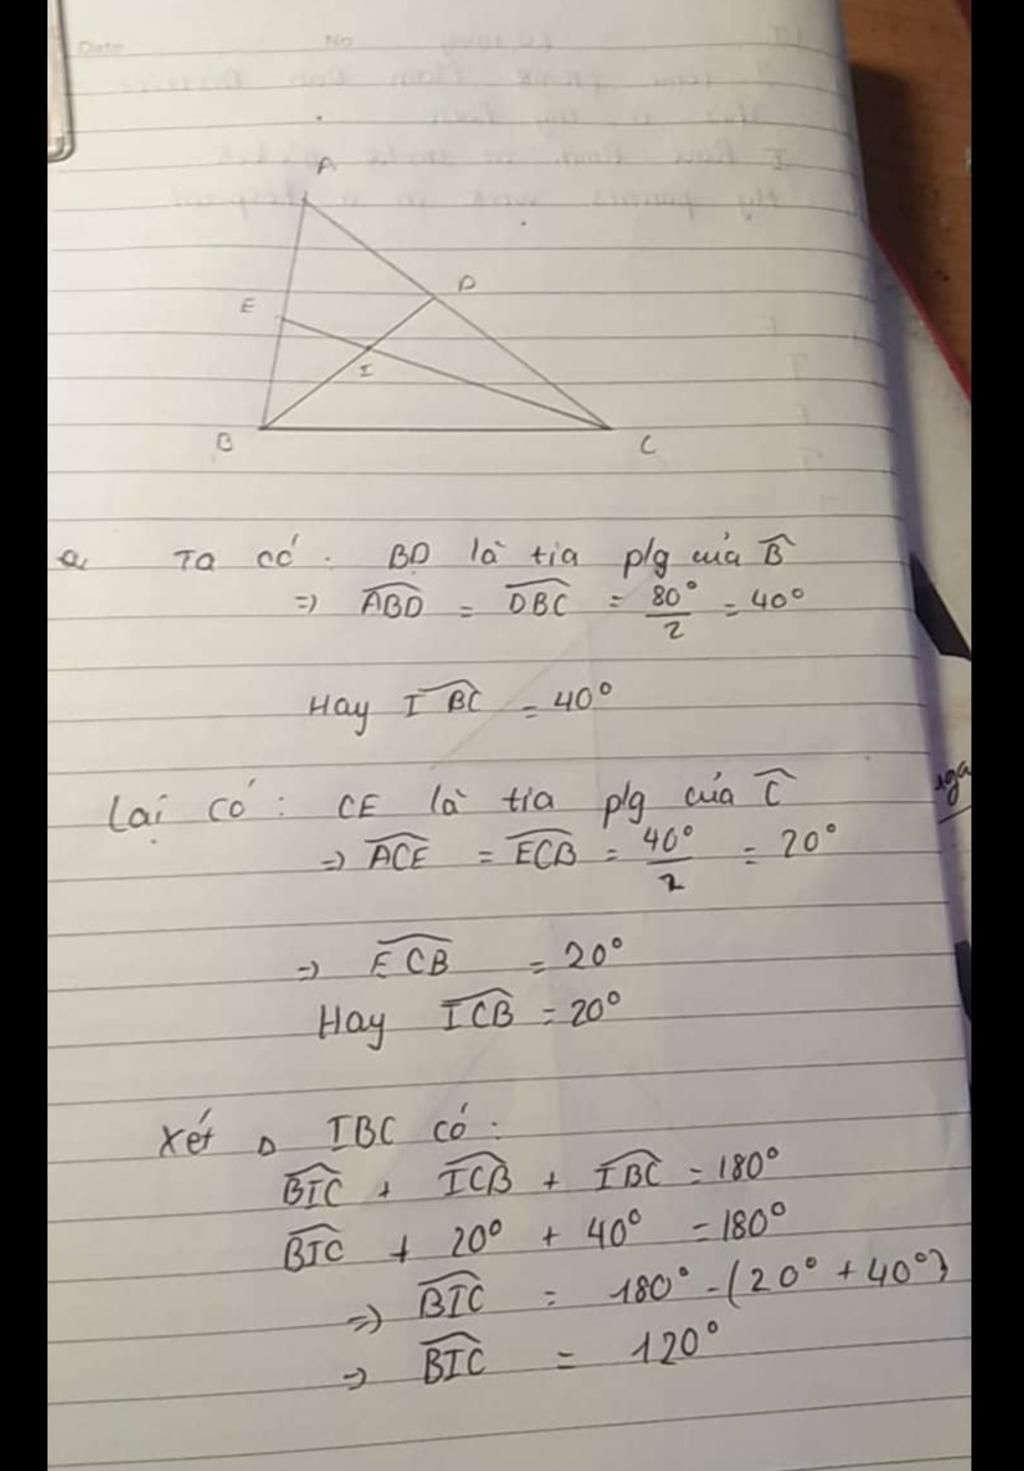 Date
No
A
D
E
I
B
C
a, Ta có: BD là tia p/g của B̂
=) ABD = DBC = 80°/2 = 40°
Hay IBC = 40°
Lại có: CE là tia p/g của Ĉ
=) ACE = ECB = 40°/2 = 20°
=) ECB = 20°
Hay ICB = 20°
Xét Δ IBC có:
BIC + ICB + IBC = 180°
BIC + 20° + 40° = 180°
=) BIC = 180° - (20° + 40°)
=) BIC = 120°